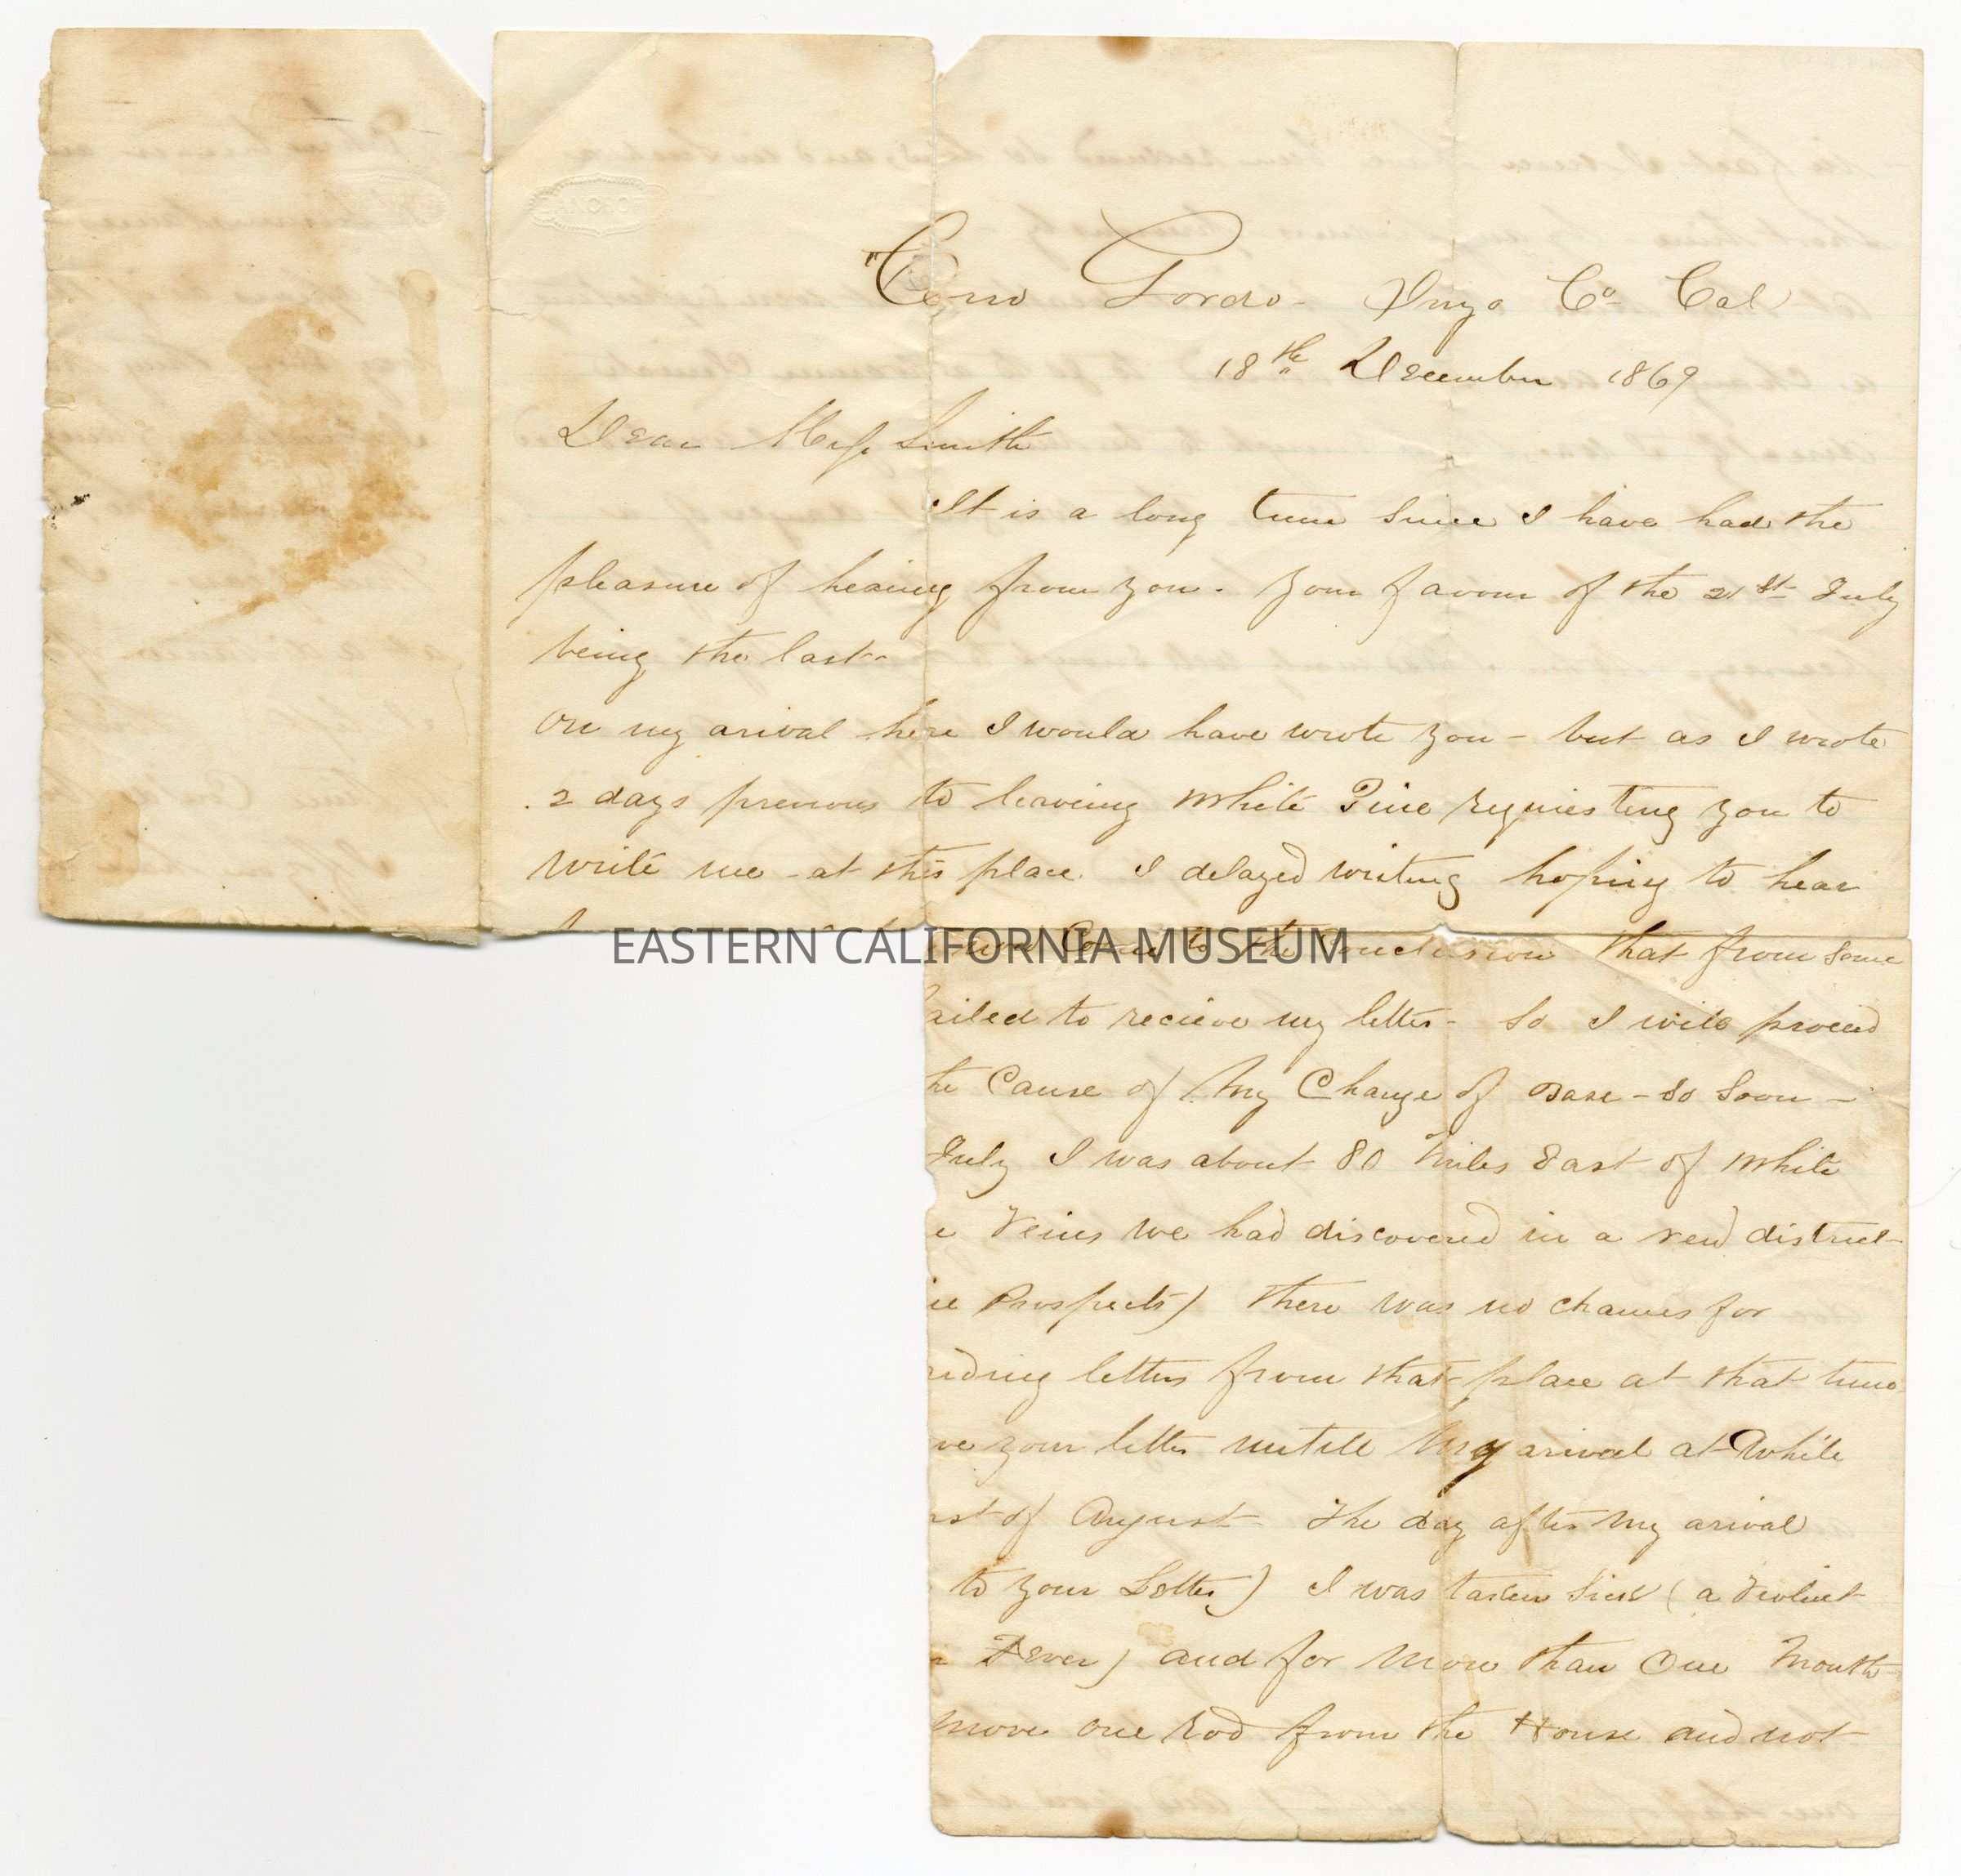 BANCROFT
Cerro Gordo - Inyo Co Cal
18th December 1869
Dear Miss Smith
It is a long time since I have had the
pleasure of hearing from you. Your favour of the 21st July
being the last-
On my arival here I would have wrote you - but as I wrote
2 days previous to leaveing White Pine requiesting you to
write me - at this place. I delayed writing hoping to hear
come to the conclusion that from some
ailed to recieve my letter - So I will proceed
he Cause of My Change of Base - so soon -
July I was about 80 Miles East of White
e Veins we had discovered in a new district-
ie Prospects) There was no chances for
nding letters from that place at that time
ve your letter untill My arival at White
rst of August - The day after my arival
to your Letter) I was taken sick (a Violent
n Fever) and for More than One Month
move one rod from the House and not
EASTERN CALIFORNIA MUSEUM